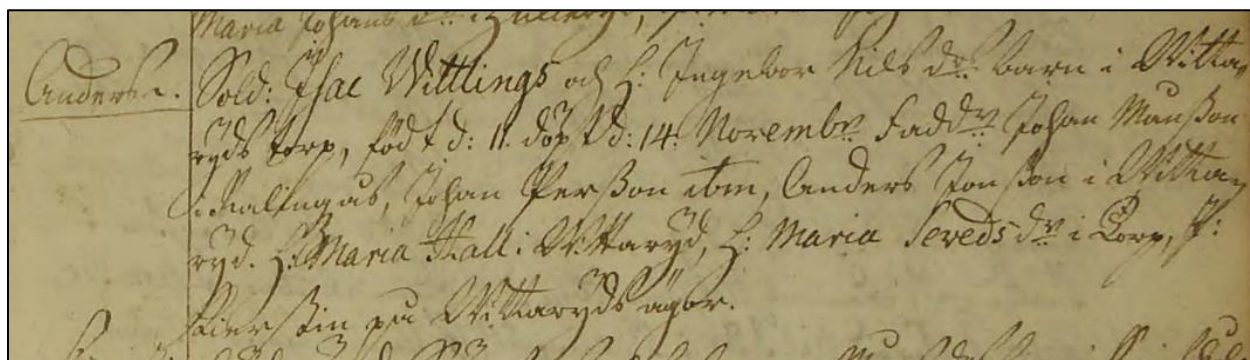 Maria Johans dr i
Anders.
Sold: Isac Wittlings och H: Ingebor Nils drs barn i Witta
ryds torp, född d: 11. döpt d: 14. Novembr. Faddr Johan Månsson
i, Johan Persson ibm, Anders Jonsson i Witta
ryd. H: Maria Hall i Wittaryd, H: Maria Sereds dr i Torp, P:
på Wittaryds ägor.